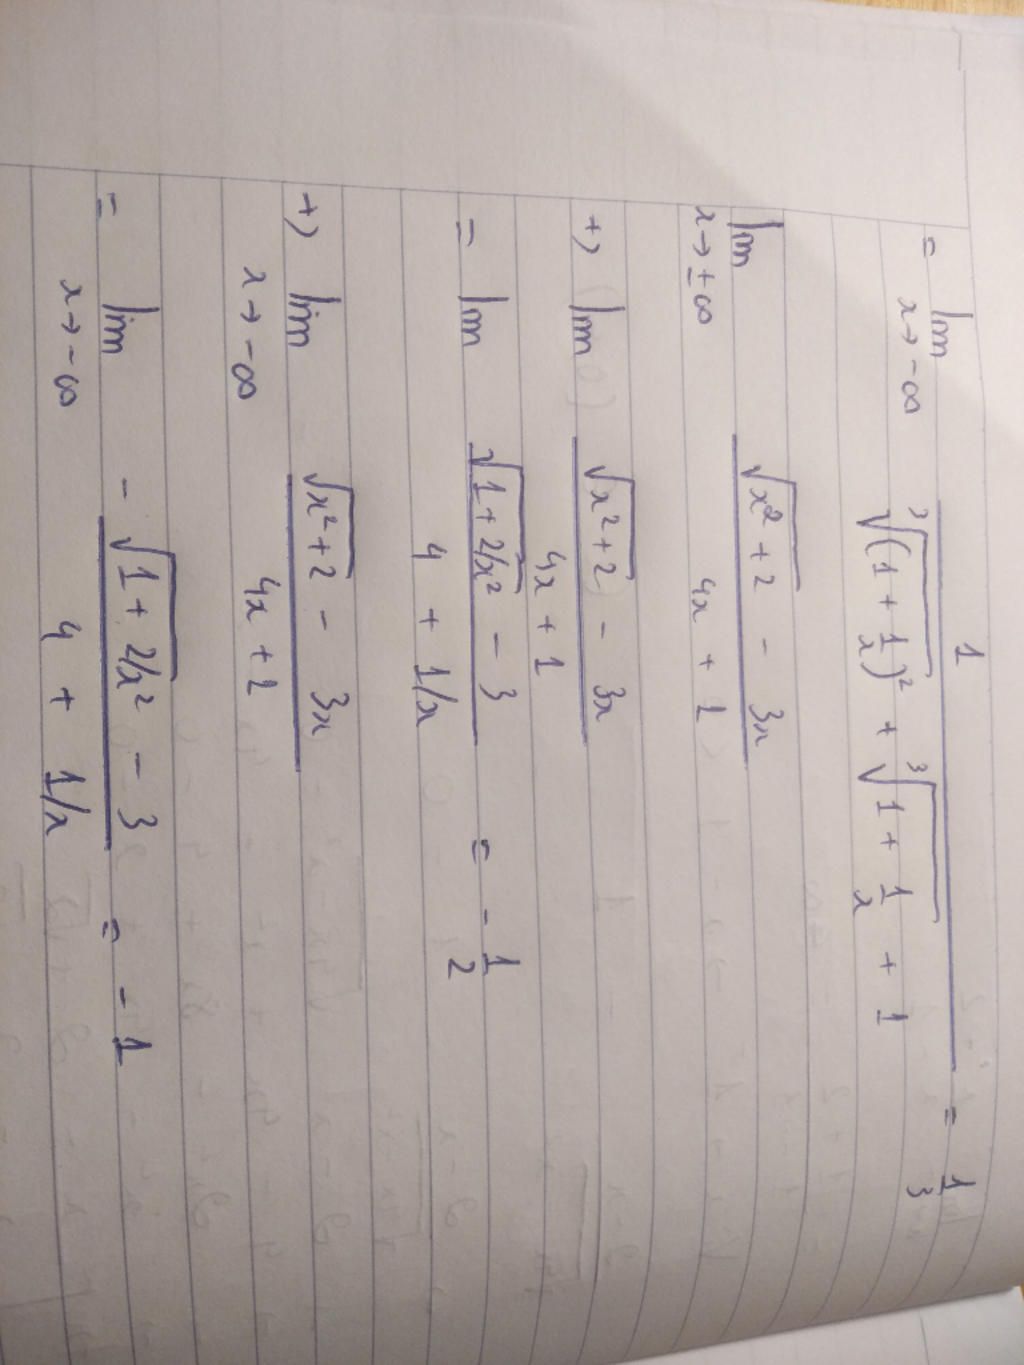 = lim x→-∞ 1 / (∛((1 + 1/x)²) + ∛(1 + 1/x) + 1) = 1/3
lim x→±∞ (√(x² + 2) - 3x) / (4x + 1)
+) lim (√(x² + 2) - 3x) / (4x + 1)
= lim (√(1 + 2/x²) - 3) / (4 + 1/x) = -1/2
+) lim x→-∞ (√(x² + 2) - 3x) / (4x + 2)
= lim x→-∞ (-√(1 + 2/x²) - 3) / (4 + 1/x) = -1